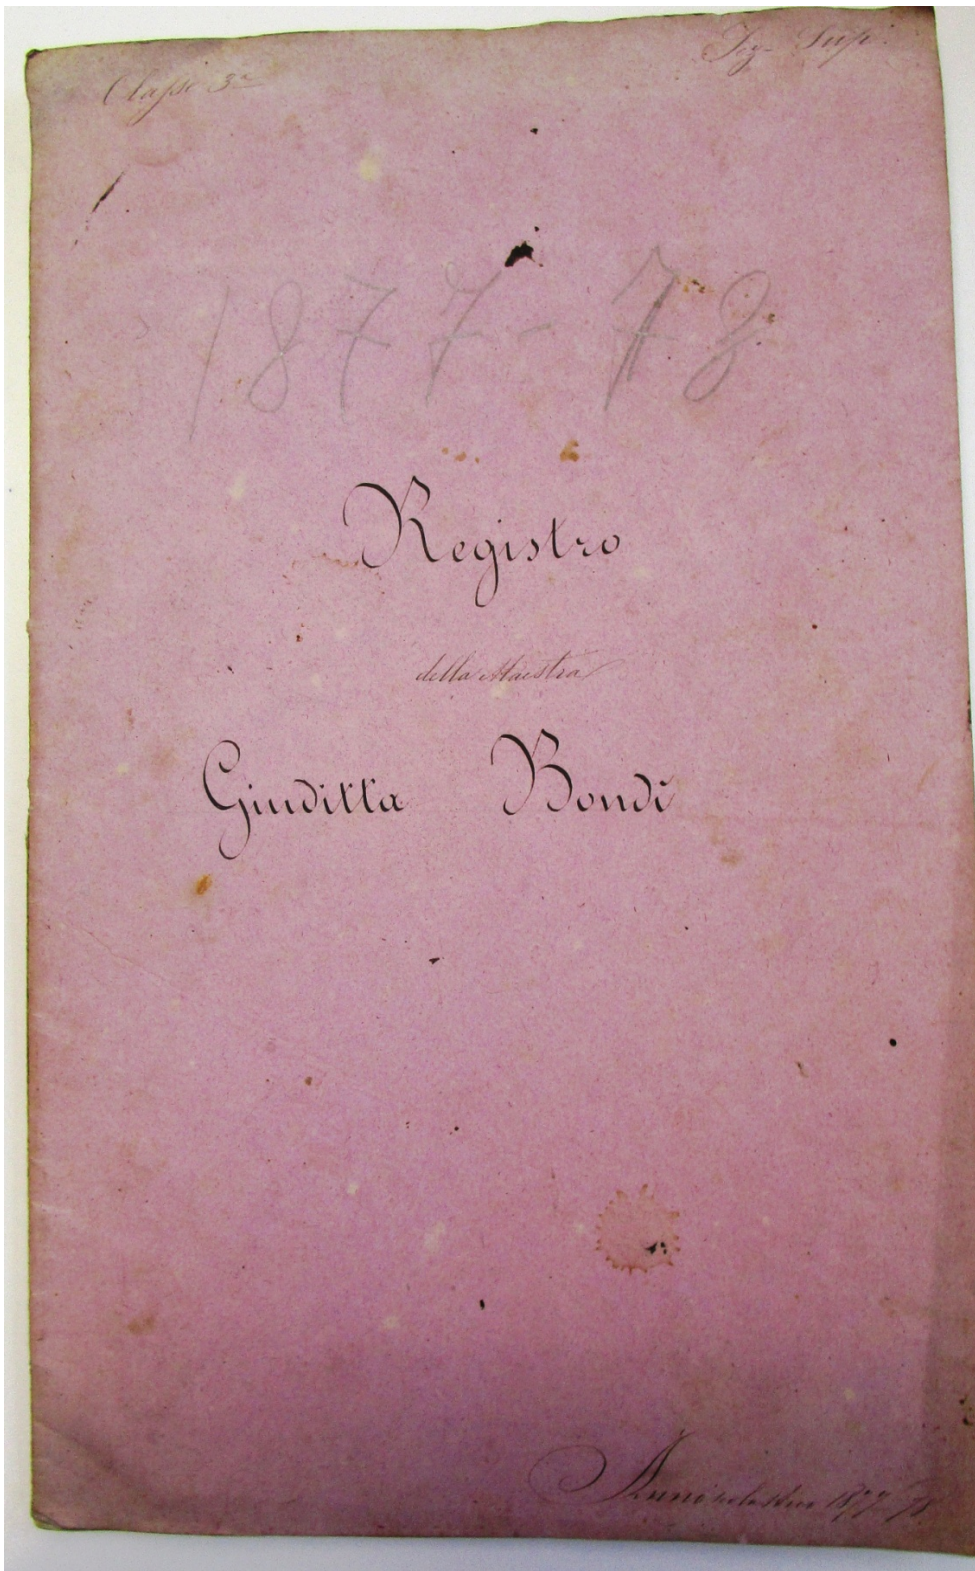 Classe 3ª
Sup.
1877-78
Registro
della Maestra
Giuditta Bondi
Anno scolastico 1877-78